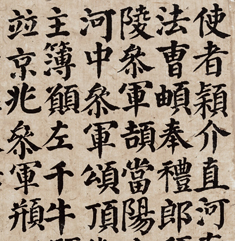 使者穎介直河
法曹頔奉禮郎
陵叅軍頡當陽
河中叅軍頌頂
主簿願左千牛
竝京兆叅軍頩